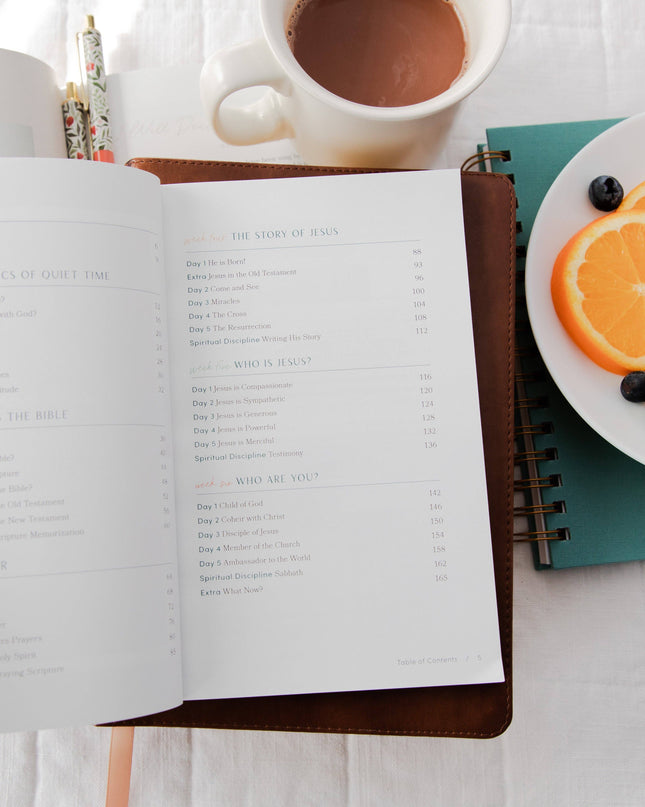 Will
6
9
CS OF QUIET TIME
?
with God?
12
16
20
24
28
30
32
es
itude
S THE BIBLE
ble?
pture
e Bible?
e Old Testament
e New Testament
cripture Memorization
36
40
44
48
52
56
60
R
er
rs Prayers
oly Spirit
raying Scripture
68
69
72
76
80
85
week four THE STORY OF JESUS
Day 1 He is Born! 88
Extra Jesus in the Old Testament 93
Day 2 Come and See 96
Day 3 Miracles 100
Day 4 The Cross 104
Day 5 The Resurrection 108
Spiritual Discipline Writing His Story 112
week five WHO IS JESUS?
Day 1 Jesus is Compassionate 116
Day 2 Jesus is Sympathetic 120
Day 3 Jesus is Generous 124
Day 4 Jesus is Powerful 128
Day 5 Jesus is Merciful 132
Spiritual Discipline Testimony 136
week six WHO ARE YOU?
Day 1 Child of God 142
Day 2 Coheir with Christ 146
Day 3 Disciple of Jesus 150
Day 4 Member of the Church 154
Day 5 Ambassador to the World 158
Spiritual Discipline Sabbath 162
Extra What Now? 165
Table of Contents / 5